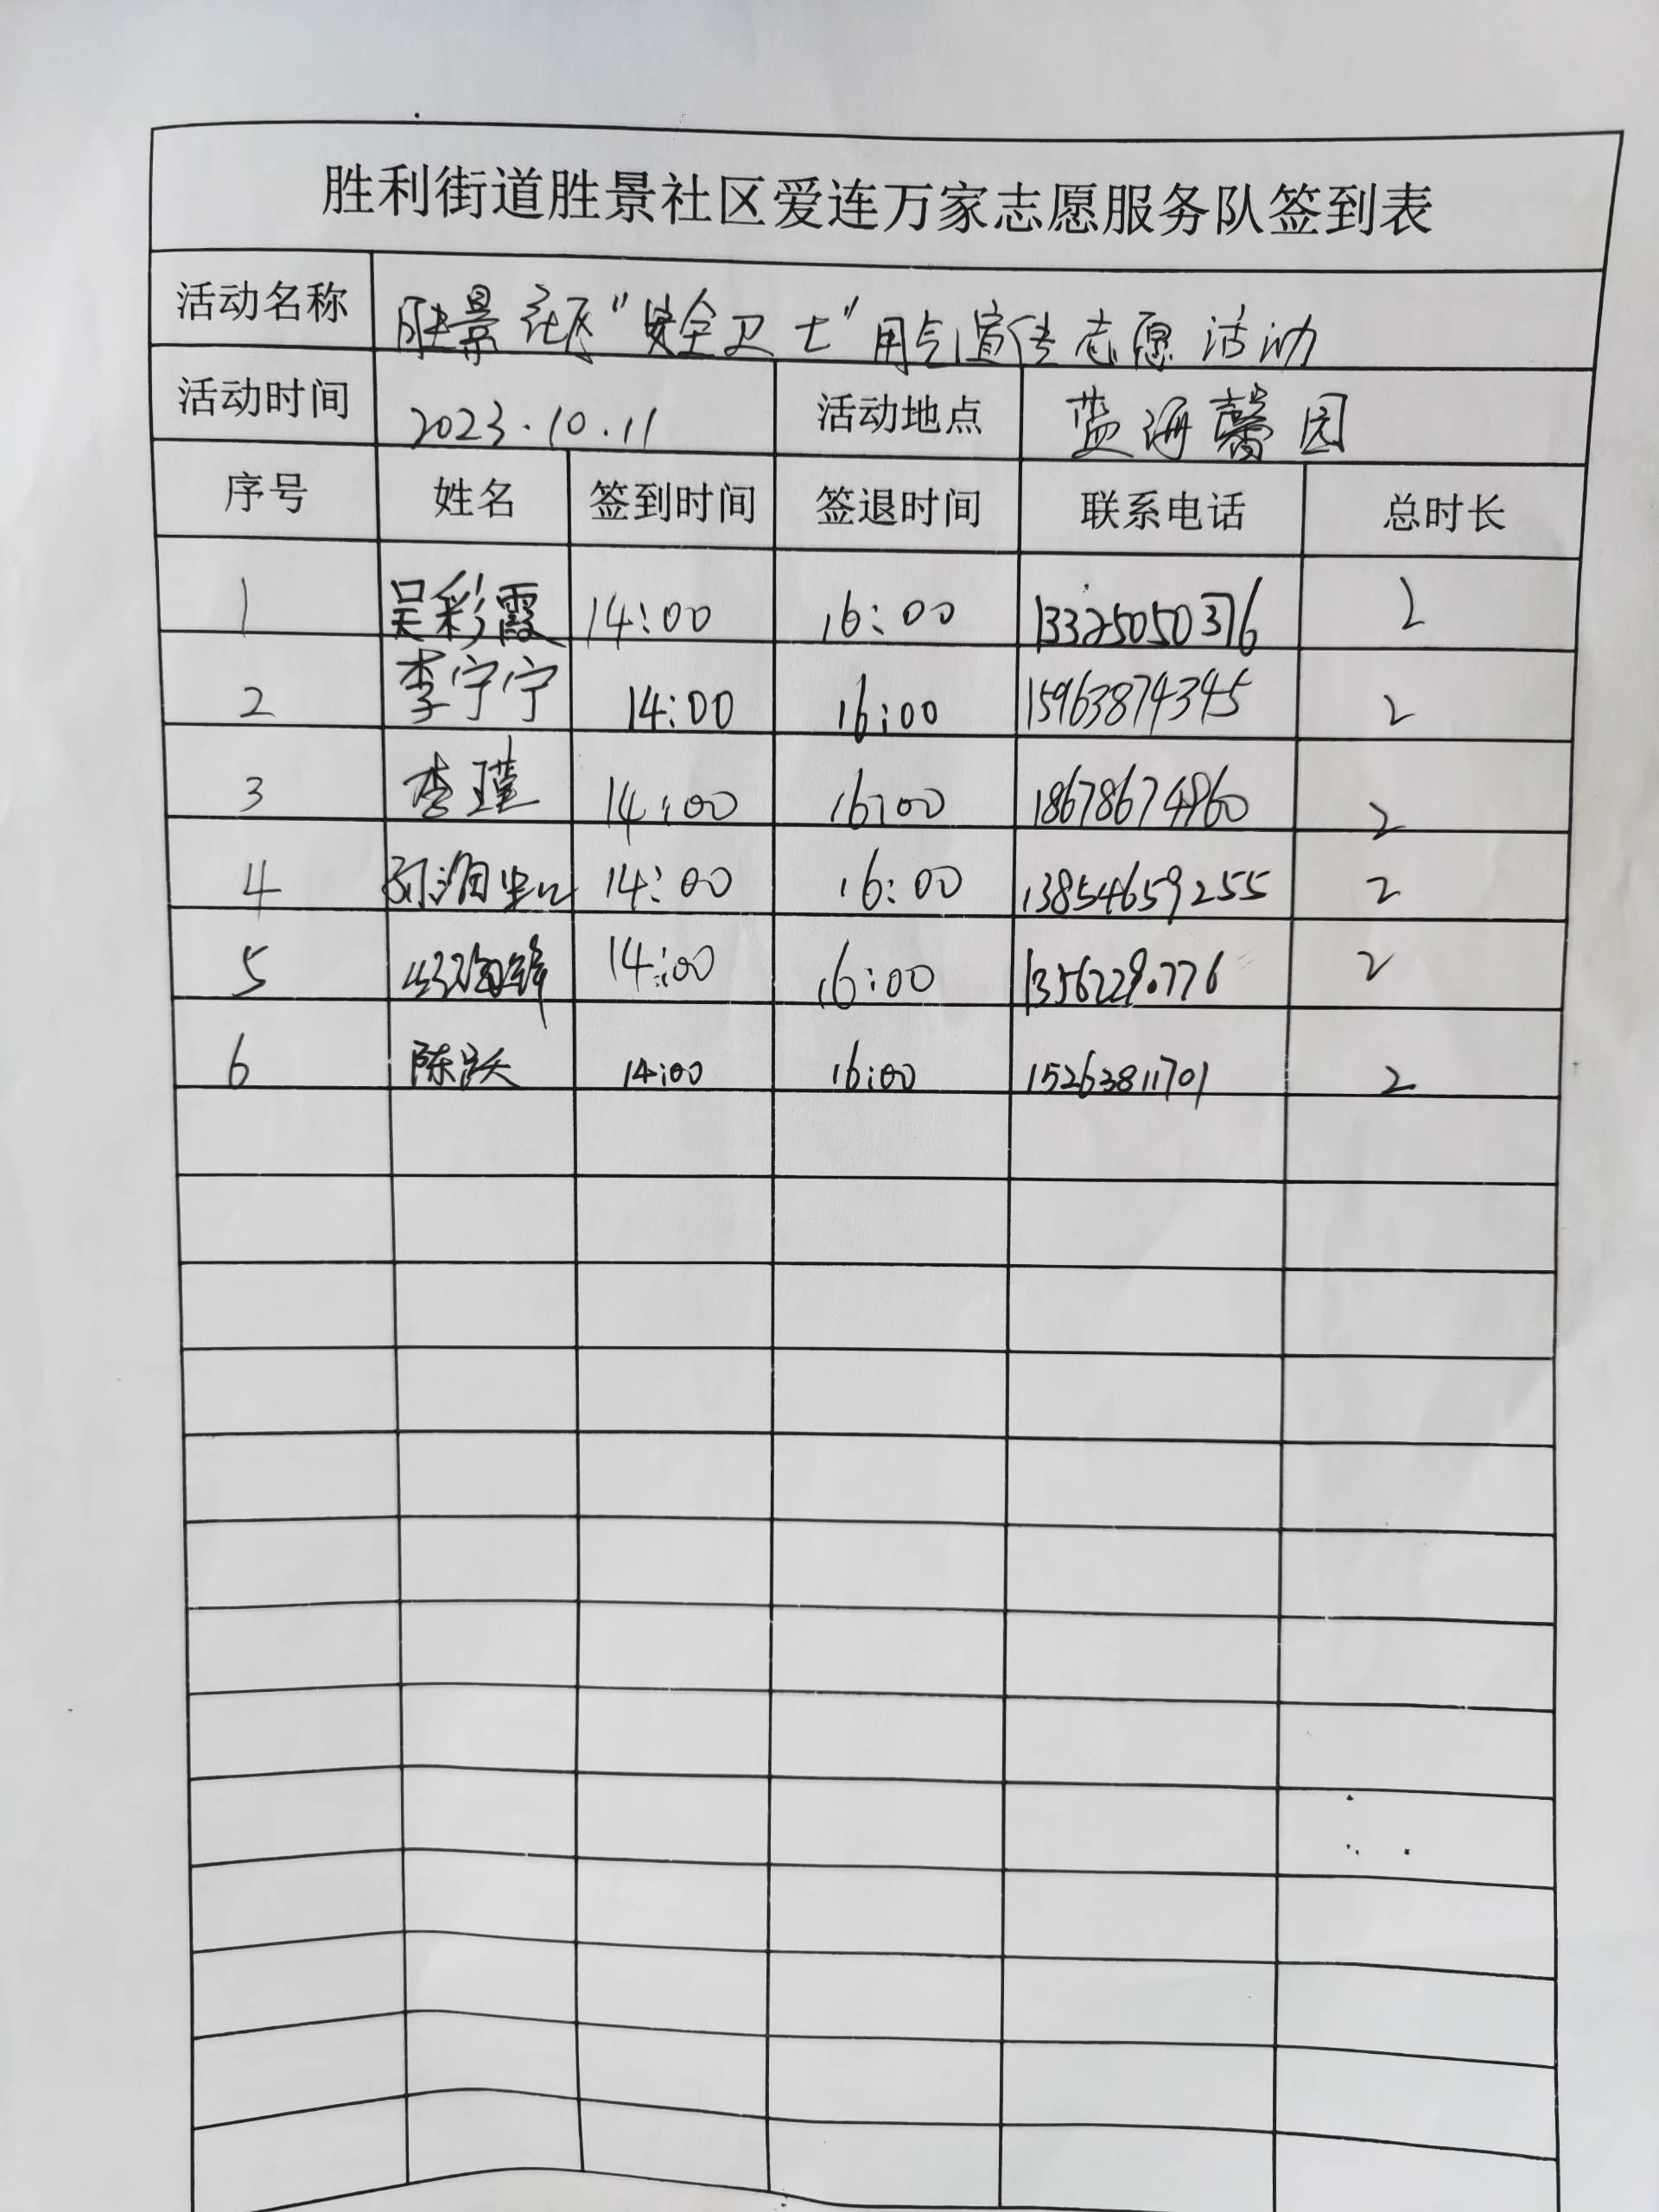 胜利街道胜景社区爱连万家志愿服务队签到表
活动名称 胜景社区"安全卫士"用气宣传志愿活动
活动时间 2023.10.11 活动地点 蓝海馨园
序号 姓名 签到时间 签退时间 联系电话 总时长
1 吴彩霞 14:00 16:00 13325050376 2
2 李宁宁 14:00 16:00 15963874345 2
3 李瑾 14:00 16:00 18678674960 2
4 14:00 16:00 13854659255 2
5 14:00 16:00 2
6 陈跃 14:00 16:00 15263811701 2